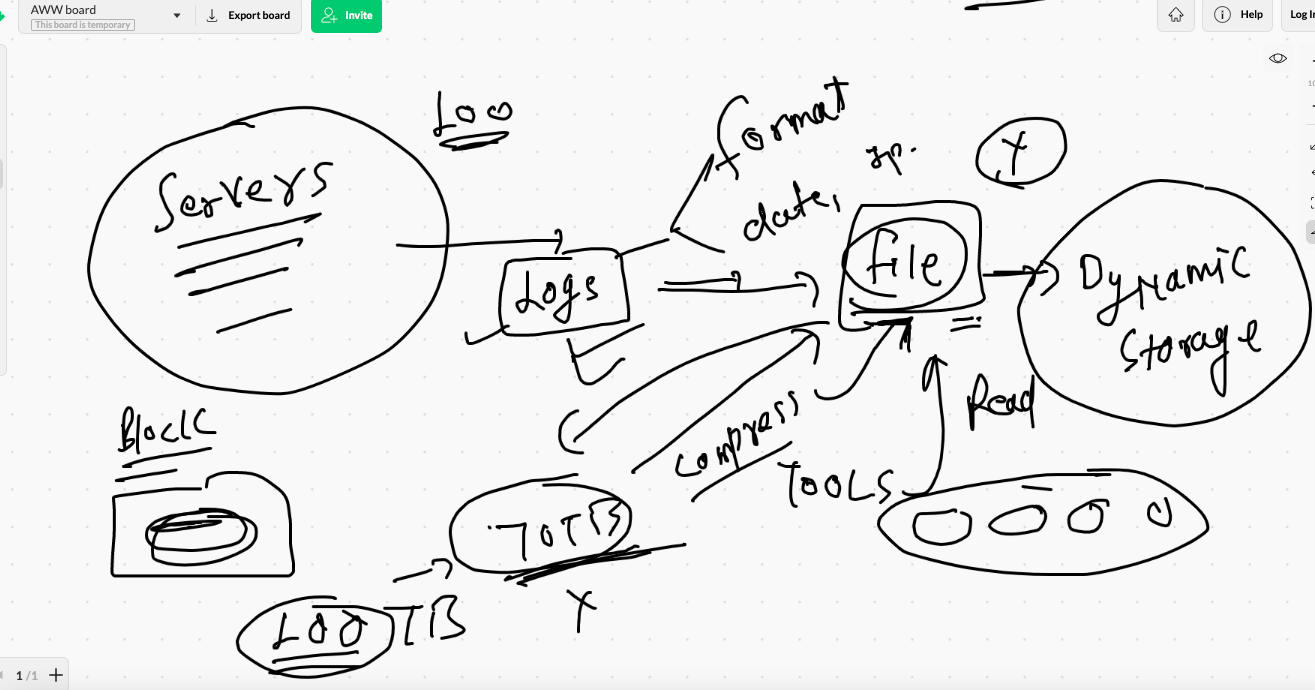 AWW board
This board is temporary
Export board
Invite
Help
100
format
Servers
date,
Y
Logs
file
Dynamic
Storage
Block
compress
Read
TOOLS
70TB
100 TB
Y
1/1